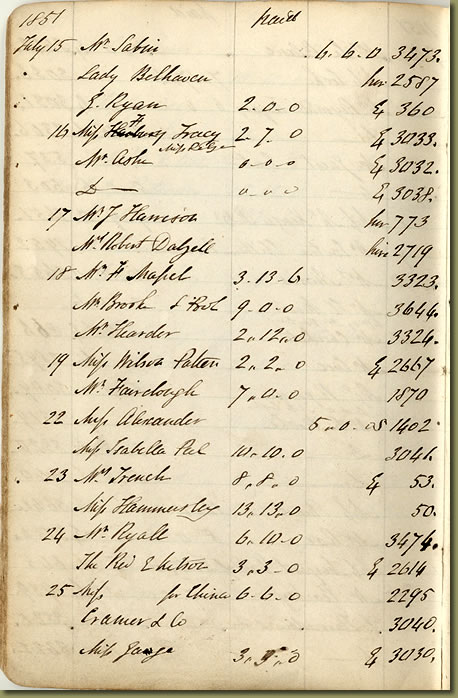 1851 paid
July 15 Mr Sabin 6.6.0 3473.
Lady Belhaven hire 2587
J. Ryan 2.0.0 E 360
16 Miss Tracy 2.7.0 E 3033.
Mr Ashe 0-0-0 E 3032.
D— 0-0-0 E 3038.
17 Mr J Harrison hire 773
Mrs Robert Dalzell hire 2719
18 Mr H Mapel 3.13.6 3323.
Mr Brook & 9.0.0 3644.
Mr Hearder 2.12.0 3324.
19 Miss Wilson Patten 2.2.0 E 2667
Mr Fairclough 7.0.0 1870
22 Miss Alexander 5.0.0 S 1402
Miss Isabella Peel 10.10.0 3041.
23 Mrs Trench 8.8.0 E 53.
Miss Hammersley 13.13.0 50.
24 Mr Ryall 6.10.0 3474.
The Rev E 3.3.0 E 2614
25 Miss for China 6.6.0 2295
Cramer & Co 3040.
Miss 3.3.0 E 3030.